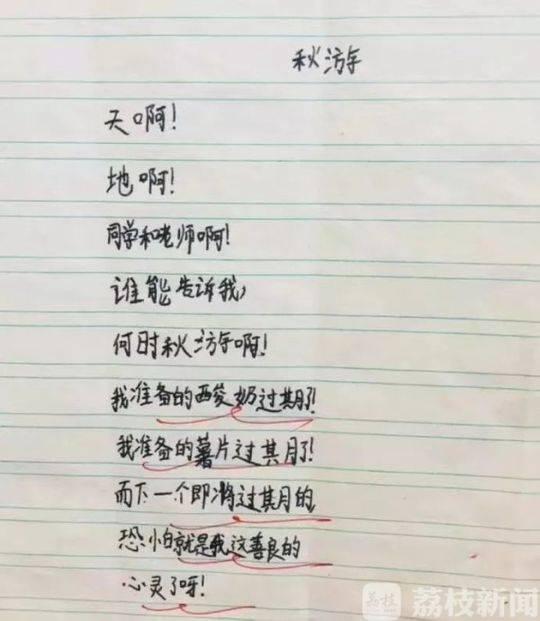 秋游
天啊!
地啊!
同学和老师啊!
谁能告诉我,
何时秋游啊!
我准备的酸奶过期了!
我准备的薯片过期了!
而下一个即将过期的
恐怕就是我这善良的
心灵了呀!
荔枝 荔枝新闻